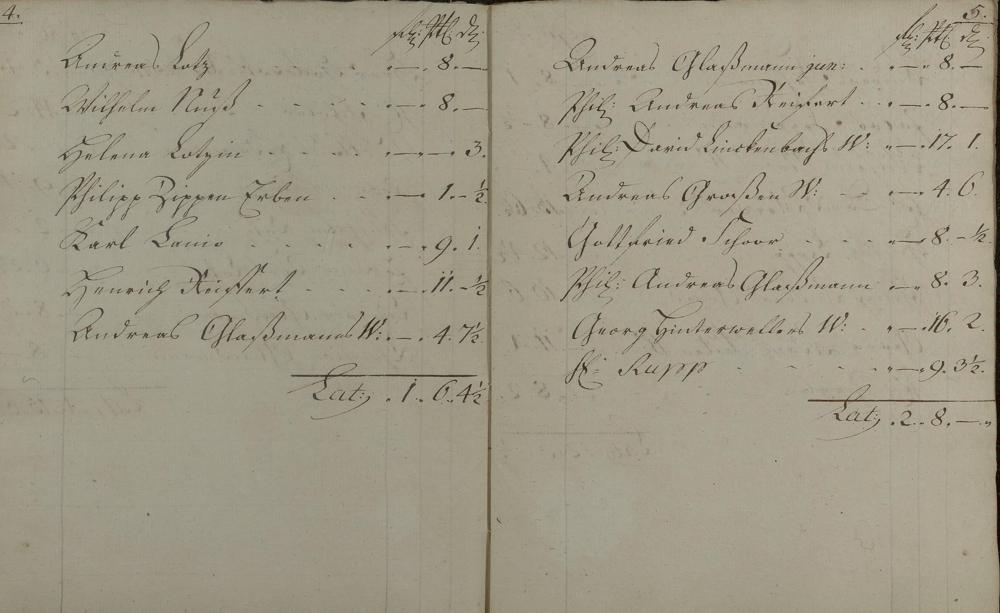 4.
Andreas Lotz . — . 8. —
Wilhelm Nuß . - - - . — . 8. —
Helena Lotzin - - - - . — . — . 3.
Philipp Zippen Erben . - . — . 1. – ½.
Karl Lanio . . . . . . – . 9. 1.
Henrich Reiffert . - - - . — . 11. – ½
Andreas Glaßmanns W: . — . 4. 7½
Lat: . 1. 6. 4½
5.
Andreas Glaßmann jun: . . — . 8. —
Phil: Andreas Reiffert . . . — . 8. —
Phil: David Linckenbachs W: . — . 17. 1.
Andreas Großen W: - - . — . 4. 6.
Gottfried Schoor - - - . — . 8. – ½.
Phil: Andreas Glaßmann . — . 8. 3.
Georg Hinterwellers W: . . — . 16. 2.
Rupp - - - - . — . 9. 3½.
Lat: . 2. 8. — .